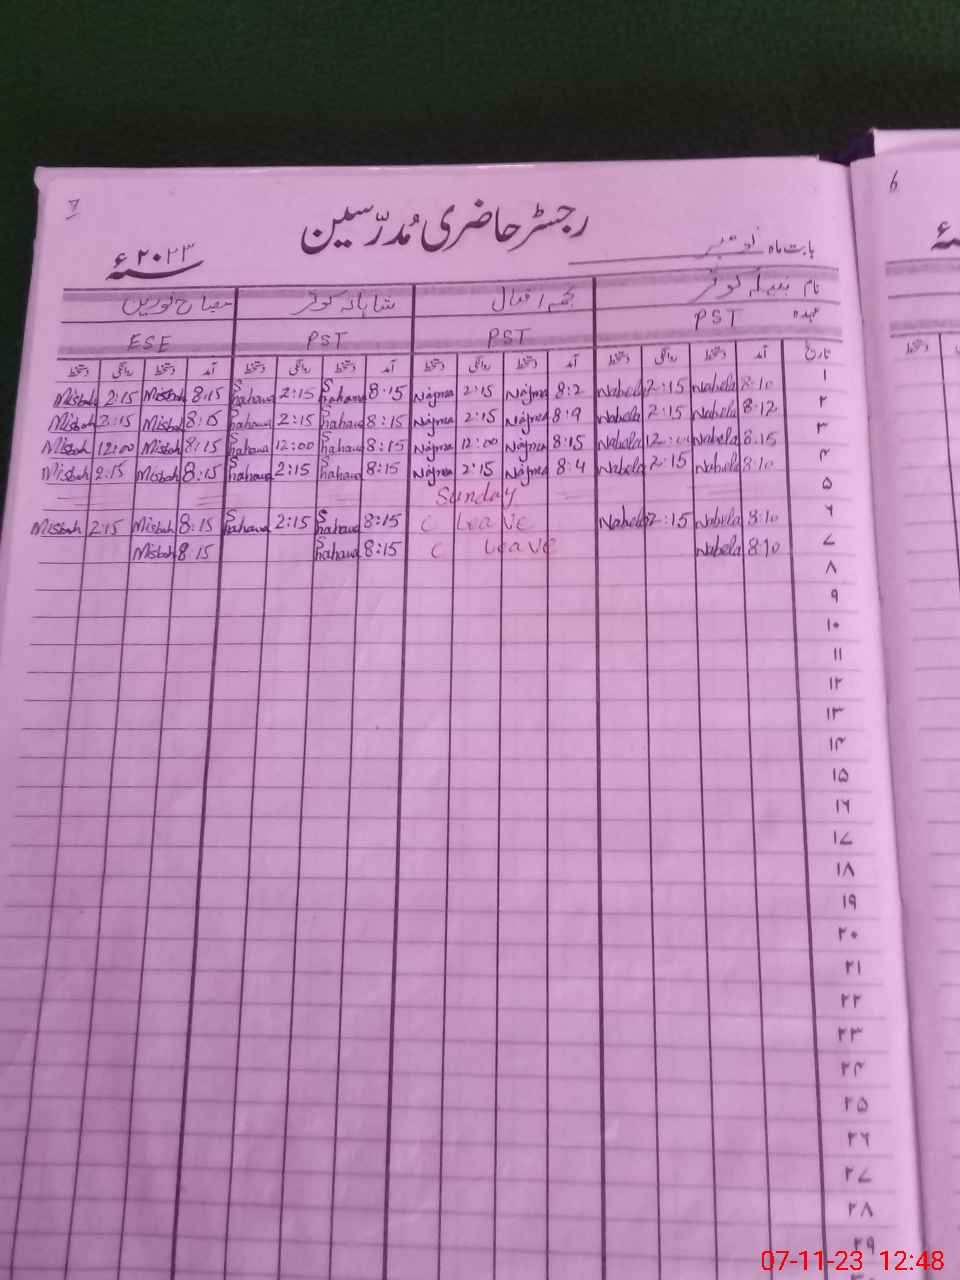 7
6
رجسٹر حاضری مُدرّسین
بابت ماہ نومبر
سنہ ۲۰۲۳ء
نام نبیلہ کوثر نجمہ اقبال شاہانہ کوثر مصباح نورین
عہدہ PST PST PST ESE
تاریخ آمد دستخط روانگی دستخط آمد دستخط روانگی دستخط آمد دستخط روانگی دستخط آمد دستخط روانگی دستخط
Misbah 2:15 Misbah 8:15 Shahana 2:15 Shahana 8:15 Najma 2:15 Najma 8:2 Nabela 2:15 Nabela 8:10 ۱
Misbah 2:15 Misbah 8:15 Shahana 2:15 Shahana 8:15 Najma 2:15 Najma 8:9 Nabela 2:15 Nabela 8:12 ۲
Misbah 12:00 Misbah 8:15 Shahana 12:00 Shahana 8:15 Najma 12:00 Najma 8:15 Nabela 12:00 Nabela 8:15 ۳
Misbah 2:15 Misbah 8:15 Shahana 2:15 Shahana 8:15 Najma 2:15 Najma 8:4 Nabela 2:15 Nabela 8:10 ۴
Sunday ۵
Misbah 2:15 Misbah 8:15 Shahana 2:15 Shahana 8:15 C Leave Nabela 2:15 Nabela 8:10 ۶
Misbah 8:15 Shahana 8:15 C Leave Nabela 8:10 ۷
۸
۹
۱۰
۱۱
۱۲
۱۳
۱۴
۱۵
۱۶
۱۷
۱۸
۱۹
۲۰
۲۱
۲۲
۲۳
۲۴
۲۵
۲۶
۲۷
۲۸
۲۹
07-11-23 12:48